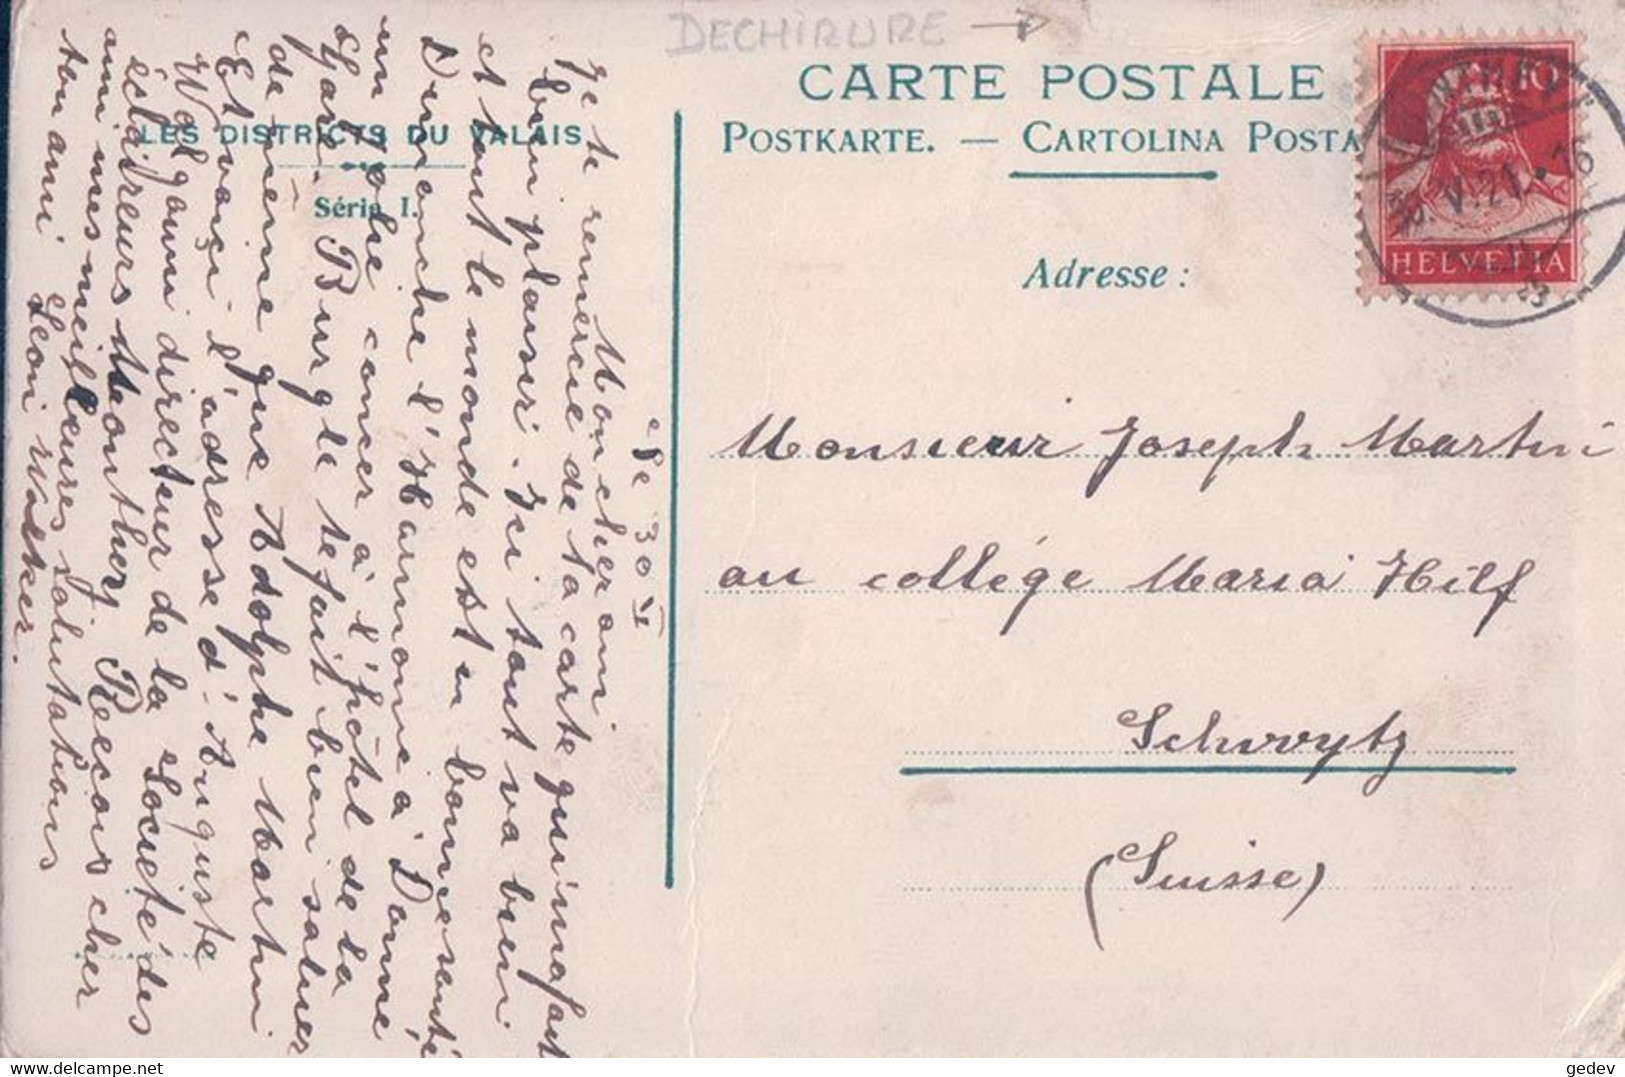 DECHIRURE →
CARTE POSTALE
POSTKARTE. — CARTOLINA POSTA
LES DISTRICTS DU VALAIS
Série I.
Adresse :
10
HELVETIA
V.21.-16
Monsieur Joseph Martin
au collége Maria Hilf
Schwytz
(Suisse)
Le 30 VI
Mon cher ami
Je te remercie de ta carte qui m'a fait
bien plaisir. Ici tout va bien
et tout le monde est en bonne santé
Dimanche l'Harmonie a Donné
un jolie concer à l'hôtel de la
Gare. Burgle te fait bien saluer
de même que Adolphe Martin
Et voiçi l'adresse d'Auguste
Wolgami directeur de la Société des
éclaireurs Monthey Reçois cher
ami mes meilleures salutations
ton ami Leon Walker.
www.delcampe.net
gedev